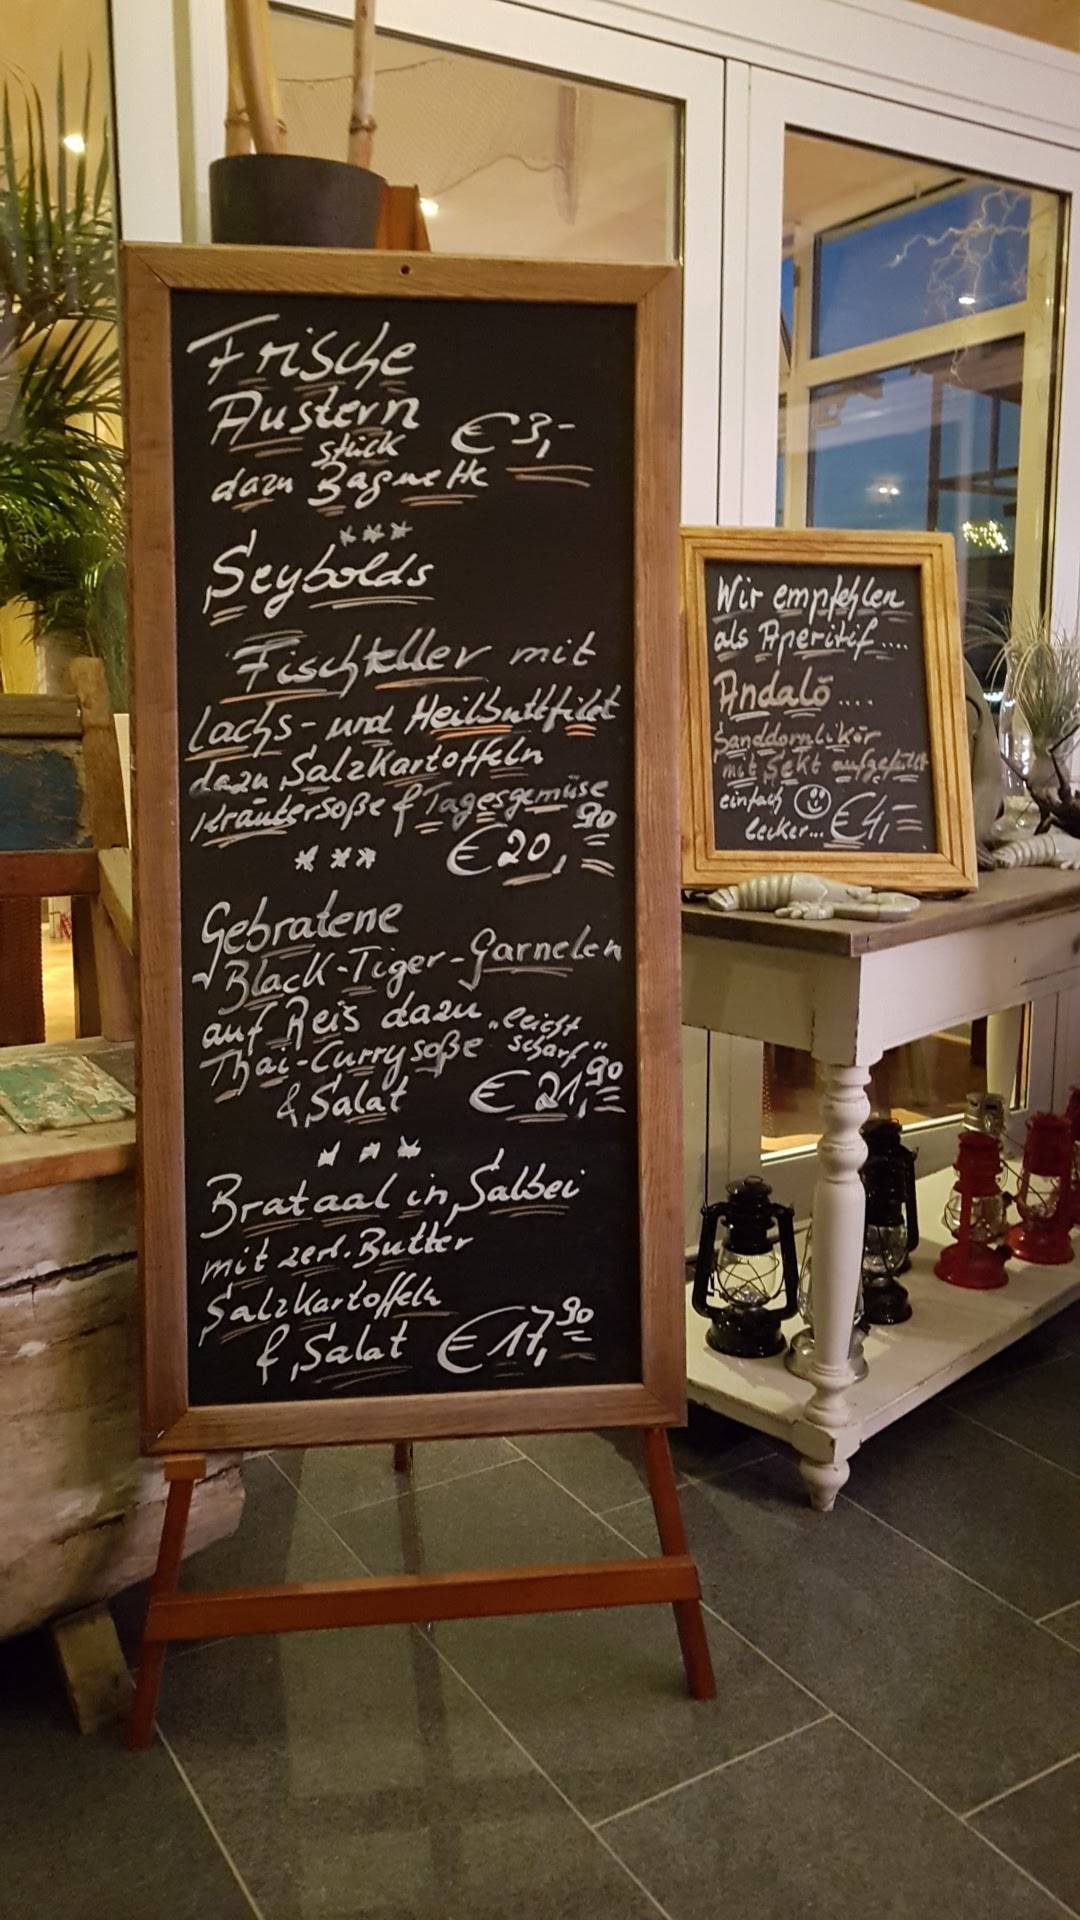 Frische
Austern
stück € 3,-
dazu Baguette
***
Seybolds
Fischteller mit
Lachs- und Heilbuttfilet
dazu Salzkartoffeln
Kräutersoße & Tagesgemüse
*** € 20,90
Gebratene
Black-Tiger-Garnelen
auf Reis dazu
Thai-Currysoße "leicht scharf"
& Salat € 21,90
***
Brataal in Salbei
mit zerl. Butter
Salzkartoffeln
& Salat € 17,90
Wir empfehlen
als Aperitif....
Andalö....
Sanddornlikör
mit Sekt aufgefüllt
einfach
lecker... € 4,-